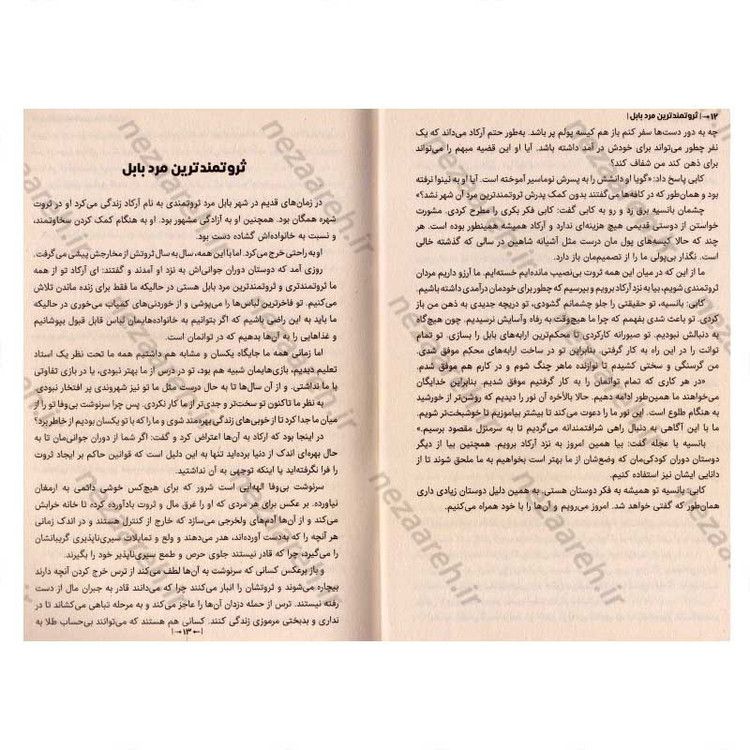 ۱۲ → | ثروتمندترین مرد بابل |
چه به دور دست‌ها سفر کنم باز هم کیسه پولم پر باشد. به‌طور حتم آرکاد می‌داند که یک
نفر چطور می‌تواند برای خودش در آمد داشته باشد. آیا او این قضیه مبهم را می‌تواند
برای ذهن کند من شفاف کند؟
کابی پاسخ داد: «گویا او دانشش را به پسرش نوماسیر آموخته است. آیا او به نینوا نرفته
بود و همان‌طور که در کافه‌ها می‌گفتند بدون کمک پدرش ثروتمندترین مرد آن شهر نشد؟»
چشمان بانسیه برق زد و رو به کابی گفت: کابی فکر بکری را مطرح کردی. مشورت
خواستن از دوستی قدیمی هیچ هزینه‌ای ندارد و آرکاد همیشه همینطور بوده است. هر
چند که حالا کیسه‌های پول مان درست مثل آشیانه شاهین در سالی که گذشته خالی
است. نگذار بی‌پولی ما را از تصمیم‌مان باز دارد.
ما از این که در میان این همه ثروت بی‌نصیب مانده‌ایم خسته‌ایم. ما آرزو داریم مردان
ثروتمندی شویم، بیا به نزد آرکاد برویم و بپرسیم که چطور برای خودمان درآمدی داشته باشیم.
کابی: بانسیه، تو حقیقتی را جلو چشمانم گشودی، تو دریچه جدیدی به ذهن من باز
کردی. تو باعث شدی بفهمم که چرا ما هیچ‌وقت به رفاه وآسایش نرسیدیم. چون هیچ‌گاه
به دنبالش نبودیم. تو صبورانه کارکردی تا محکم‌ترین ارابه‌های بابل را بسازی. تو تمام
توانت را در این راه به کار گرفتی. بنابراین تو در ساخت ارابه‌های محکم موفق شدی.
من گرسنگی و سختی کشیدم تا نوازنده ماهر چنگ شوم و در کارم هم موفق شدم.
«در هر کاری که تمام توانمان را به کار گرفتیم موفق شدیم. بنابراین خدایگان
می‌خواهند ما همین‌طور ادامه دهیم. حالا بالاخره آن نور را دیدیم که روشن‌تر از خورشید
به هنگام طلوع است. این نور ما را دعوت می‌کند تا بیشتر بیاموزیم تا خوشبخت‌تر شویم.
ما با این آگاهی به دنبال راهی شرافتمندانه می‌گردیم تا به سرمنزل مقصود برسیم.»
بانسیه با عجله گفت: بیا همین امروز به نزد آرکاد برویم. همچنین بیا از دیگر
دوستان دوران کودکی‌مان که وضع‌شان از ما بهتر است بخواهیم به ما ملحق شوند تا از
دانایی ایشان نیز استفاده کنیم.
کابی: بانسیه تو همیشه به فکر دوستان هستی. به همین دلیل دوستان زیادی داری
همان‌طور که گفتی خواهد شد. امروز می‌رویم و آن‌ها را با خود همراه می‌کنیم.
ثروتمندترین مرد بابل
در زمان‌های قدیم در شهر بابل مرد ثروتمندی به نام آرکاد زندگی می‌کرد او در ثروت
شهره همگان بود. همچنین او به آزادگی مشهور بود. او به هنگام کمک کردن سخاوتمند،
و نسبت به خانواده‌اش گشاده دست بود.
او به راحتی خرج می‌کرد. اما با این همه، سال به سال ثروتش از مخارجش پیشی می‌گرفت.
روزی آمد که دوستان دوران جوانی‌اش به نزد او آمدند و گفتند: ای آرکاد تو از همه
ما ثروتمندتری و ثروتمندترین مرد بابل هستی در حالیکه ما فقط برای زنده ماندن تلاش
می‌کنیم. تو فاخرترین لباس‌ها را می‌پوشی و از خوردنی‌های کمیاب می‌خوری در حالیکه
ما باید به این راضی باشیم که اگر بتوانیم به خانواده‌هایمان لباس قابل قبول بپوشانیم
و غذاهایی را به آن‌ها بدهیم که در توانمان است.
اما زمانی همه ما جایگاه یکسان و مشابه هم داشتیم همه ما تحت نظر یک استاد
تعلیم دیدیم، بازی‌هایمان شبیه هم بود، تو در درس از ما بهتر نبودی، یا در بازی تفاوتی
با ما نداشتی. و از آن سال‌ها تا به حال درست مثل ما تو نیز شهروندی پر افتخار نبودی.
به نظر ما تاکنون تو سخت‌تر و جدی‌تر از ما کار نکردی. پس چرا سرنوشت بی‌وفا تو را از
میان ما جدا کرد تا از خوبی‌های زندگی بهره‌مند شوی و ما را که با تو یکسان بودیم از خاطر برد؟
در اینجا بود که آرکاد به آن‌ها اعتراض کرد و گفت: اگر شما از دوران جوانی‌مان تا به
حال بهره‌ای اندک از دنیا برده‌اید تنها به این دلیل است که قوانین حاکم بر ایجاد ثروت
را فرا نگرفته‌اید یا اینکه توجهی به آن نداشتید.
سرنوشت بی‌وفا الهه‌ایی است شرور که برای هیچ‌کس خوشی دائمی به ارمغان
نیاورده. بر عکس برای هر مردی که او را غرق مال و ثروت بادآورده کرده تا خانه خرابش
می‌کند و از آن‌ها آدم‌های ولخرجی می‌سازد که خارج از کنترل هستند و در اندک زمانی
هر آنچه را که به‌دست آورده‌اند، هدر می‌دهند و ولع و تمایلات سیری‌ناپذیری گریبانشان
را می‌گیرد، چرا که قادر نیستند جلوی حرص و طمع سیری‌ناپذیر خود را بگیرند.
و باز برعکس کسانی که سرنوشت به آن‌ها لطف می‌کند از ترس خرج کردن آنچه دارند
بیچاره می‌شوند و ثروتشان را انبار می‌کنند چرا که می‌دانند قادر به جبران مال از دست
رفته نیستند. ترس از حمله دزدان آن‌ها را عاجز می‌کند و به مرحله تباهی می‌کشاند تا در
نداری و بدبختی مرموزی زندگی کنند. کسانی هم هستند که می‌توانند بی‌حساب طلا به
| ← ۱۳ → |
nezaareh.ir
nezaareh.ir
nezaareh.ir
nezaareh.ir
nezaareh.ir
nezaareh.ir